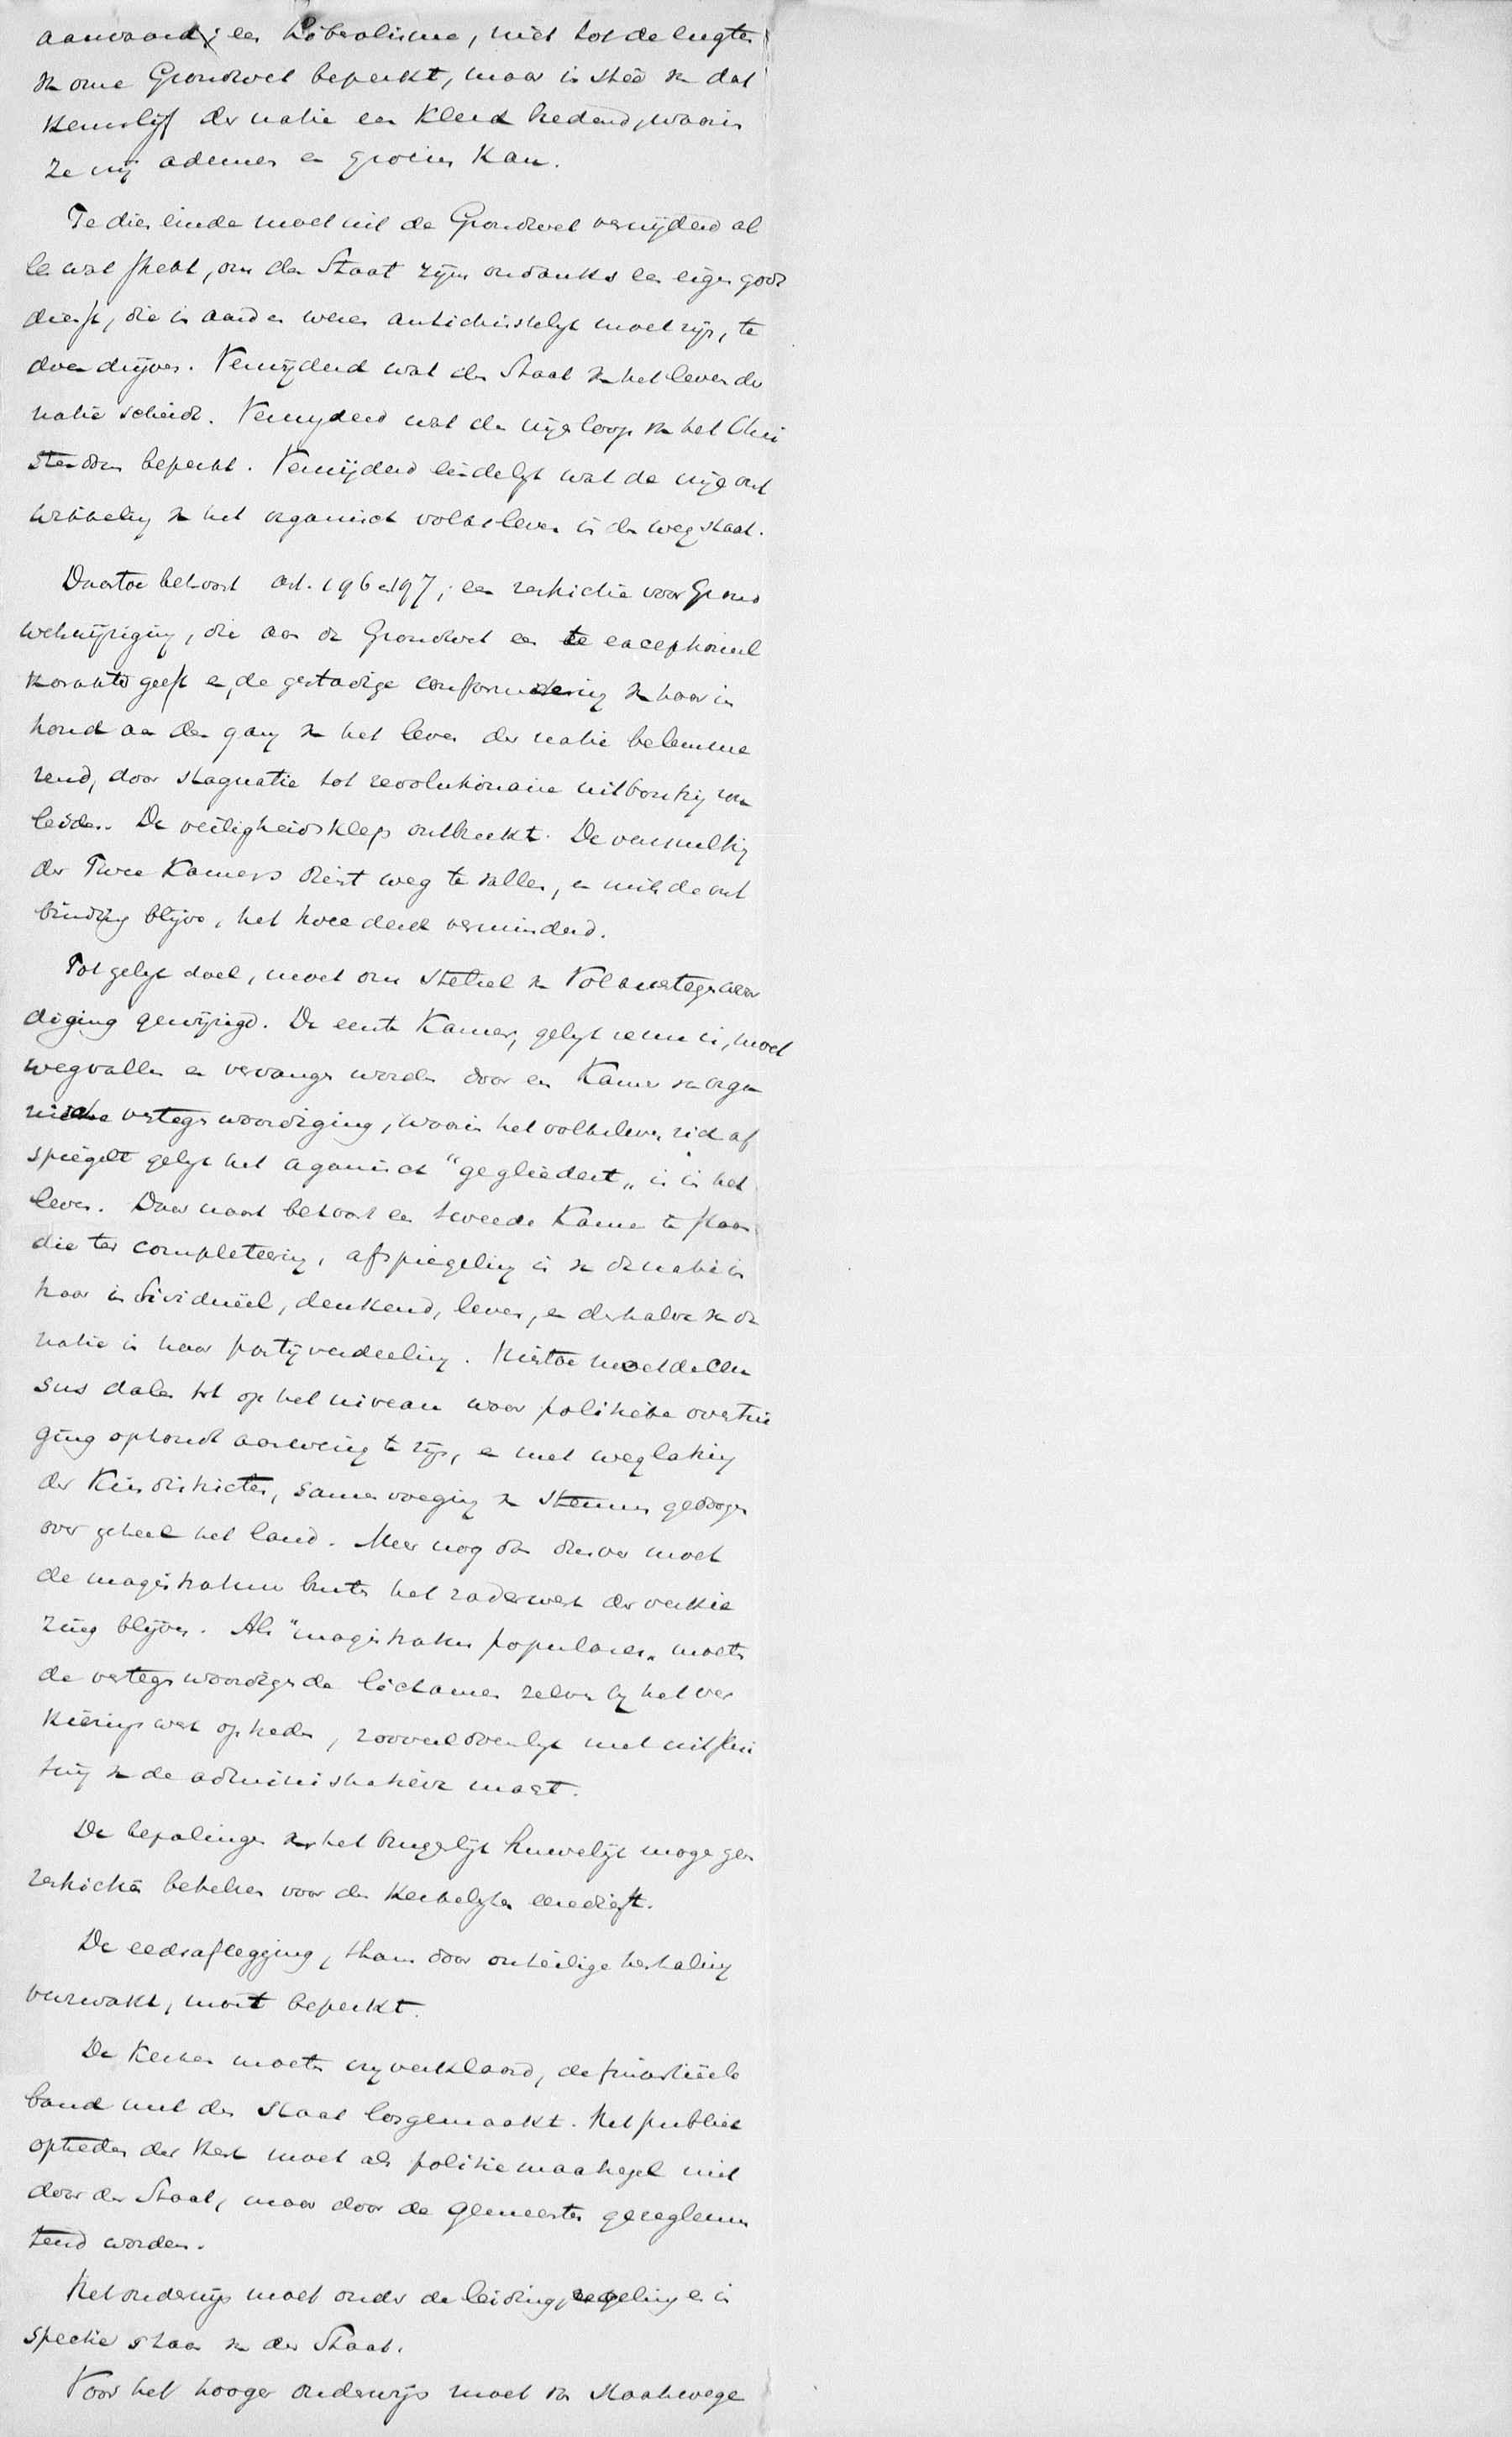 aanvaard; een Liberalisme, niet tot de lengte
van onze Grondwet beperkt, maar in stêe van dat
keurslijf der natie een kleed biedend, waarin
ze vrij ademen en groeien kan.
Te dien einde moet uit de Grondwet verwijderd al
le wat strekt, om den Staat zijns ondanks een eigen gods
dienst, die in aard en wezen antichristelijk moet zijn, te
doen drijven. Verwijderd wat den Staat van het leven der
natie scheidt. Verwijderd wat den vrijen loop van het Chri
stendom beperkt. Verwijderd eindelijk wat de vrije ont
wikkeling van het organisch volksleven in den weg staat.
Daartoe behoort Art. 196 en 197; een restrictie voor Grond
wetswijziging, die aan de Grondwet een te exceptioneel
karakter geeft en, de gestadige conformeering van haar in
houd aan den gang van het leven der natie belemme
rend, door stagnatie tot revolutionaire uitbarsting
leiden. De veiligheidsklep ontbreekt. De
der Twee Kamers dient weg te vallen, en mits de ont
binding blijve, het twee derde verminderd.
Tot gelijk doel, moet ons stelsel van Volksvertegenwoor
diging gewijzigd. De eerste Kamer, gelijk ze nu is, moet
wegvallen en vervangen worden door een Kamer van orga
nische vertegenwoordiging, waarin het volksleven zich af
spiegelt gelijk het organisch "gegliedert" is in het
leven. Daarnaast behoort een tweede Kamer te staan
die ter completeering, afspiegeling is van de natie in
haar individueel, denkend, leven, en derhalve van de
natie in haar partijverdeeling. Hiertoe moet de Cen
sus dalen tot op het niveau waar politieke overtui
ging ophoudt aanwezig te zijn, en met weglating
der Kiesdistricten, samenvoeging van stemmen gedoogen
over geheel het land. Meer nog dan dusver moet
de magistratuur buiten het raderwerk der verkie
zing blijven. Als "magistratus populares" moeten
de vertegenwoordigende lichamen zelve bij het ver
kiezingswerk optreden, zooveel doenlijk met uitslui
ting van de administratieve macht.
De bepalingen van het burgerlijk huwelijk mogen geen
restrictiën behelzen voor den Kerkelijken eeredienst.
De eedsaflegging, thans door onheilige herhaling
verzwakt, moet beperkt.
De Kerken moeten vrij verklaard, de financiëele
band met den Staat losgemaakt. Het publiek
optreden der Kerk moet als politie maatregel niet
door den Staat, maar door de Gemeenten gereglemen
teerd worden.
Het onderwijs moet onder de leiding, regeling en in
spectie staan van den Staat.
Voor het hooger onderwijs moet van Staatswege